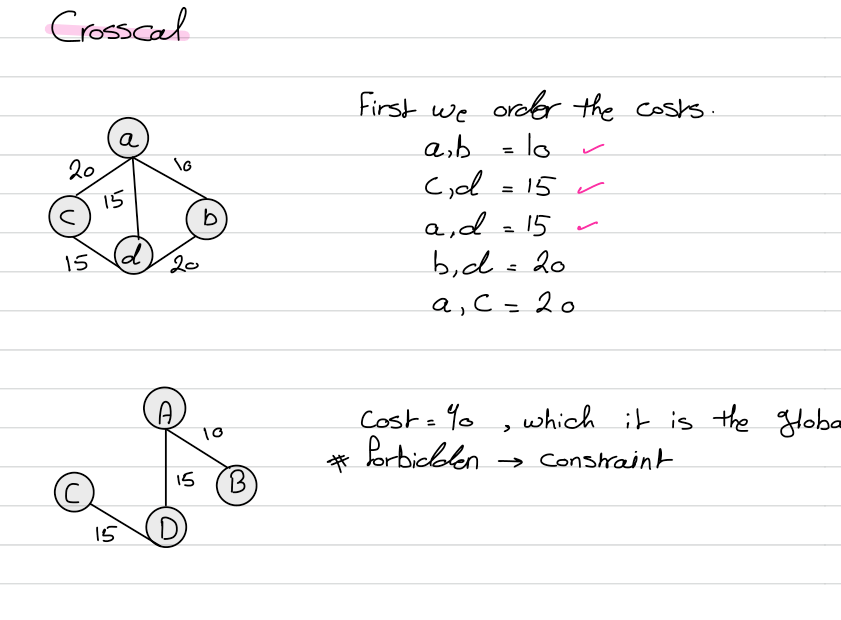 Crosscal
First we order the costs.
a
20
10
15
c
b
d
15
20
a,b = 10
c,d = 15
a,d = 15
b,d = 20
a,c = 20
A
10
C
15
B
D
15
Cost = 40 , which it is the globa
* forbidden → constraint